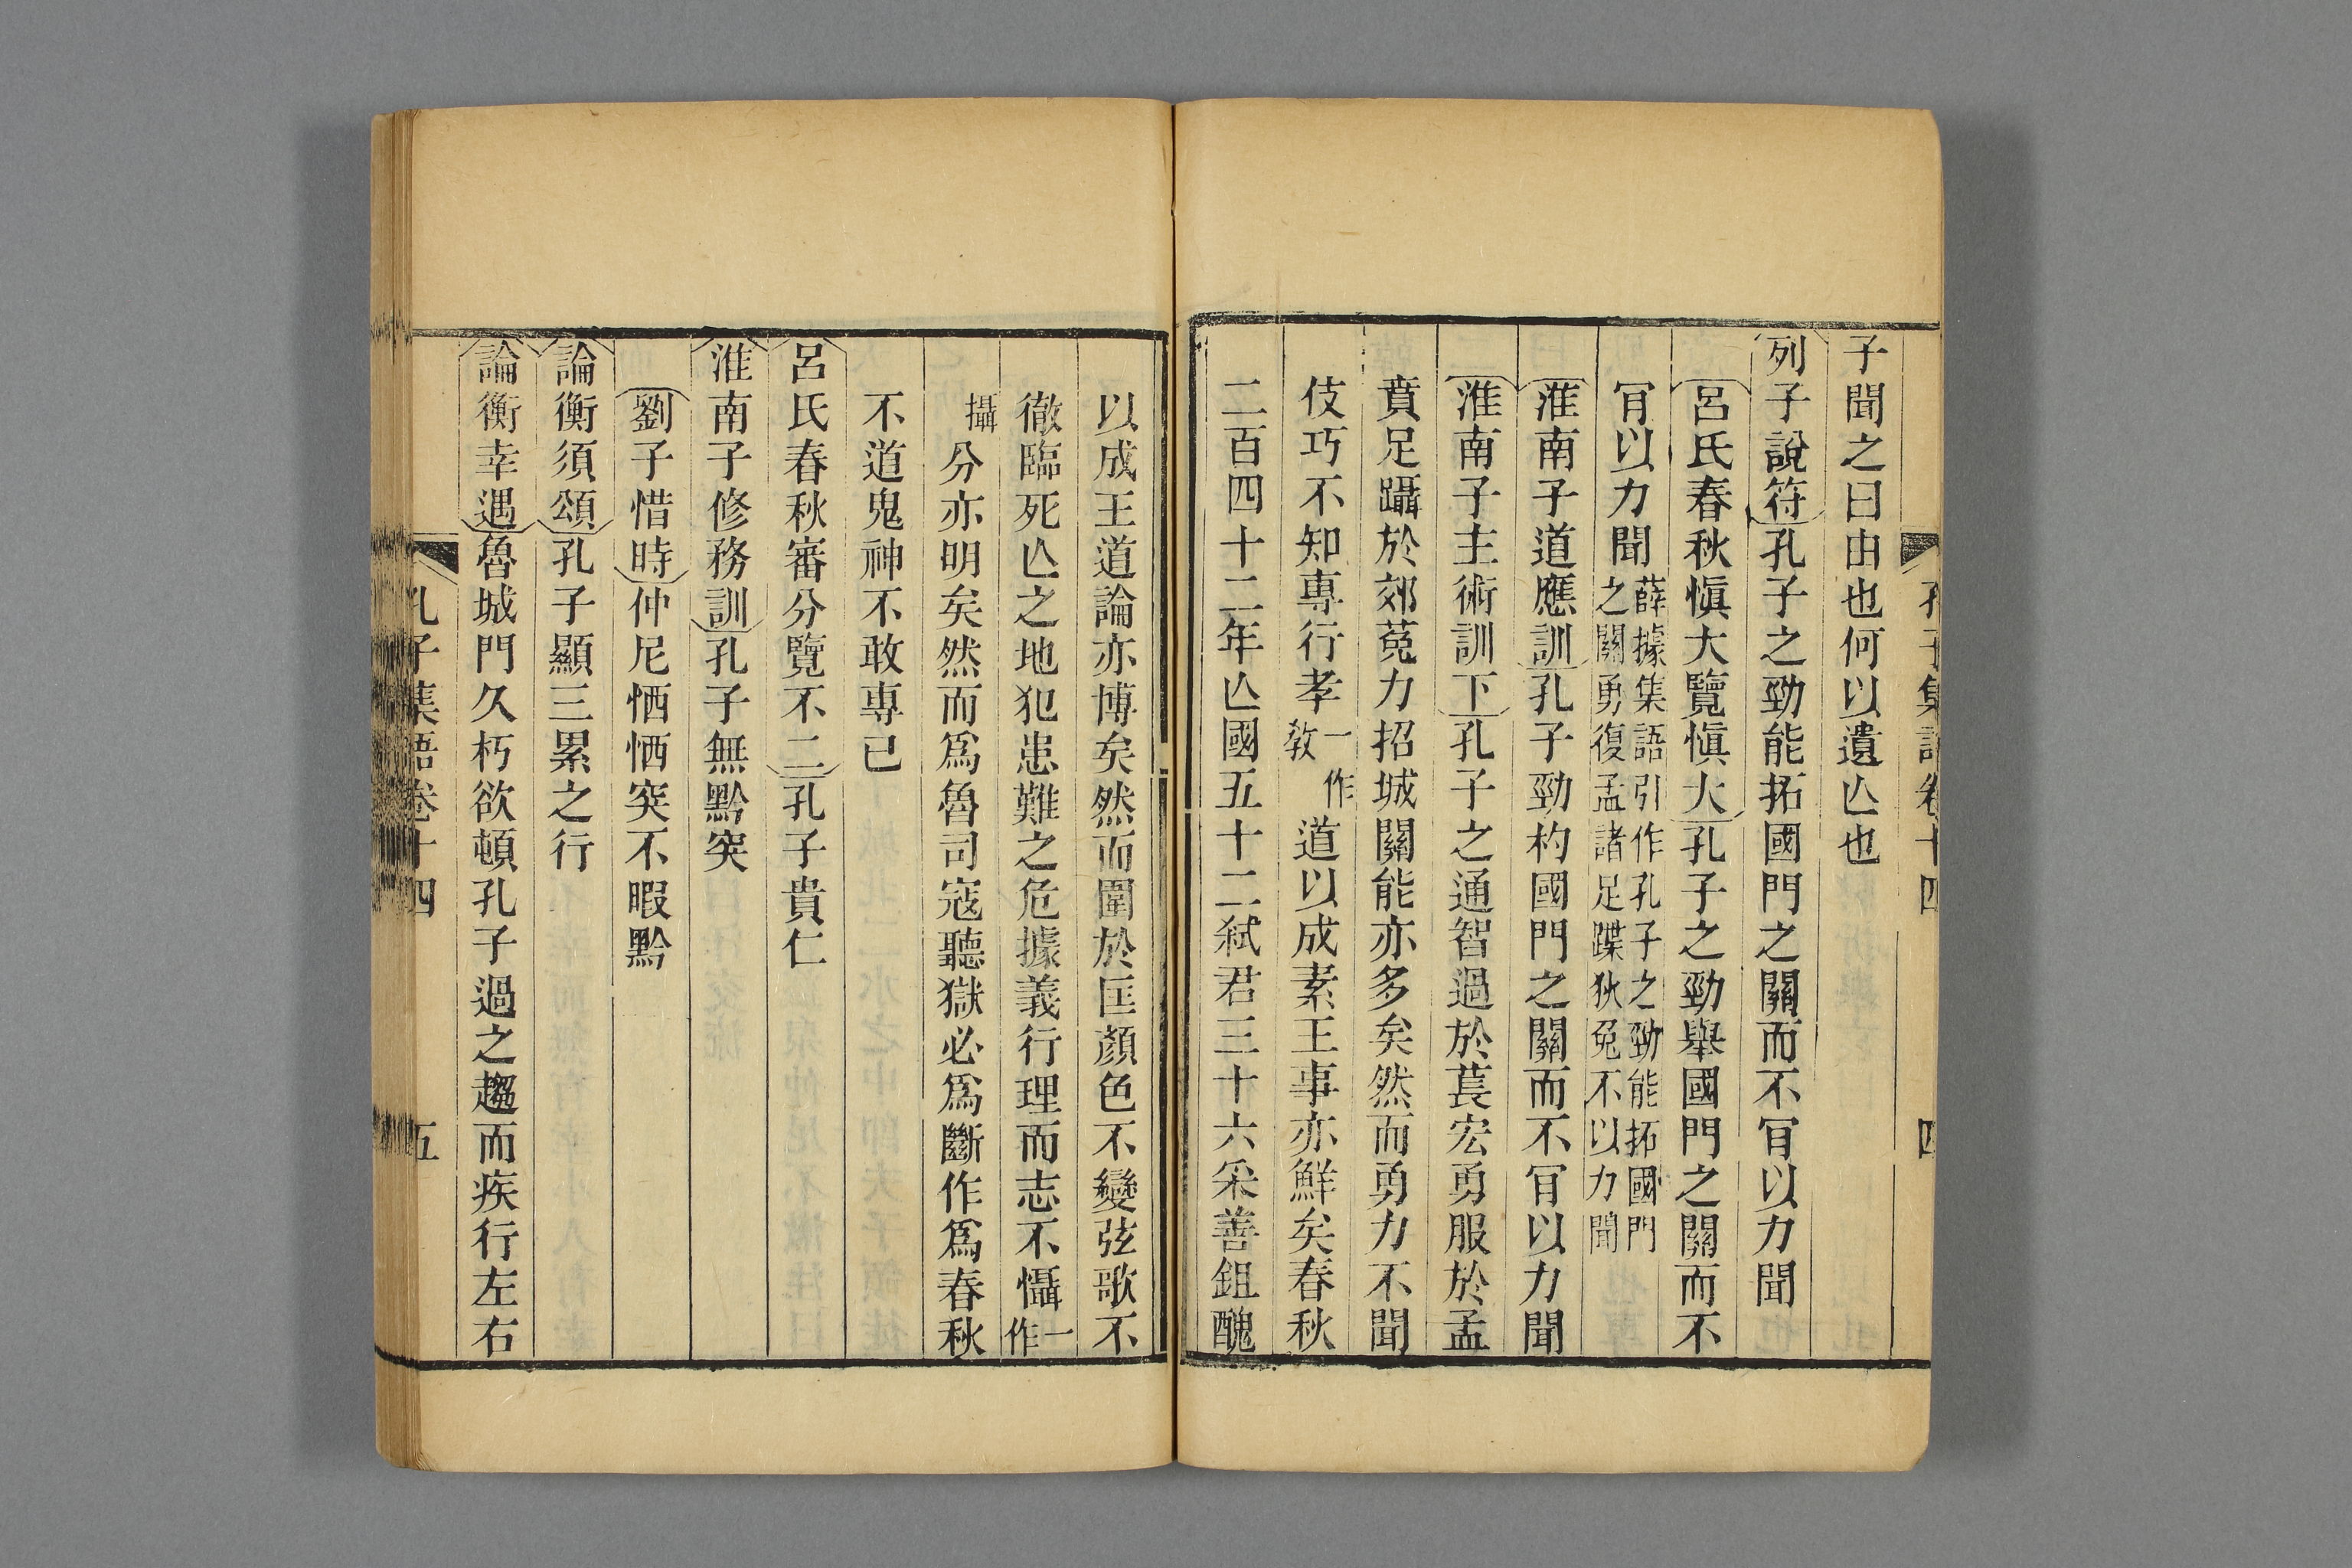 孔子集語卷十四 四
子聞之曰由也何以遺亾也
列子說符孔子之勁能拓國門之關而不肎以力聞
呂氏春秋愼大覽愼大孔子之勁舉國門之關而不
肎以力聞薛據集語引作孔子之勁能拓國門之關勇復孟諸足蹀狄兔不以力聞
淮南子道應訓孔子勁杓國門之關而不肎以力聞
淮南子主術訓下孔子之通智過於萇宏勇服於孟
賁足躡於郊菟力招城關能亦多矣然而勇力不聞
伎巧不知專行孝一作教道以成素王事亦鮮矣春秋
二百四十二年亾國五十二弒君三十六采善鉏醜
以成王道論亦博矣然而圍於匡顏色不變弦歌不
徹臨死亾之地犯患難之危據義行理而志不懾一作
攝分亦明矣然而爲魯司寇聽獄必爲斷作爲春秋
不道鬼神不敢專己
呂氏春秋審分覽不二孔子貴仁
淮南子修務訓孔子無黔突
劉子惜時仲尼恓恓突不暇黔
論衡須頌孔子顯三累之行
論衡幸遇魯城門久朽欲頓孔子過之趨而疾行左右
孔子集語卷十四 五